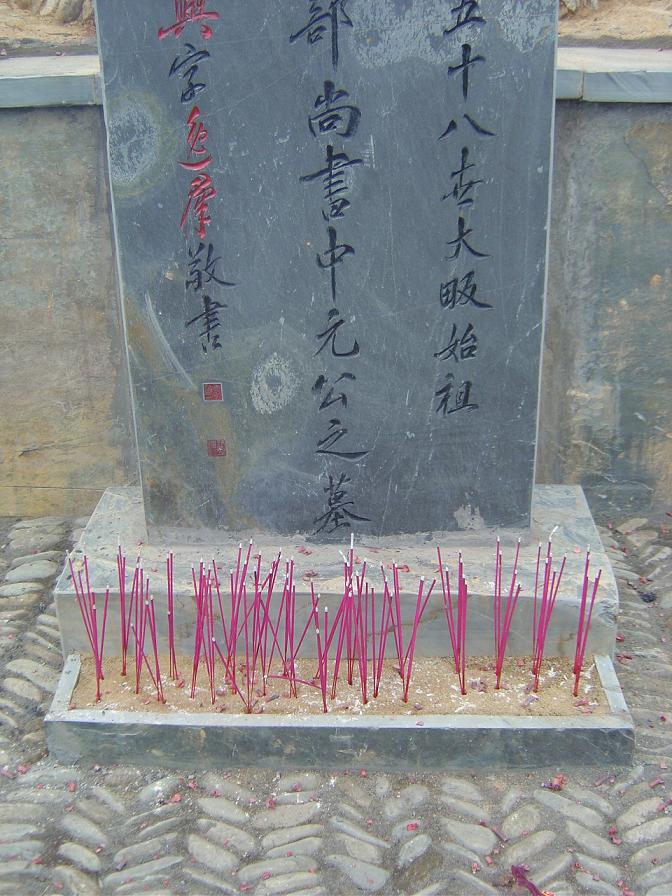 五十八世大畈始祖
部尚書中元公之墓
興字逸群敬書